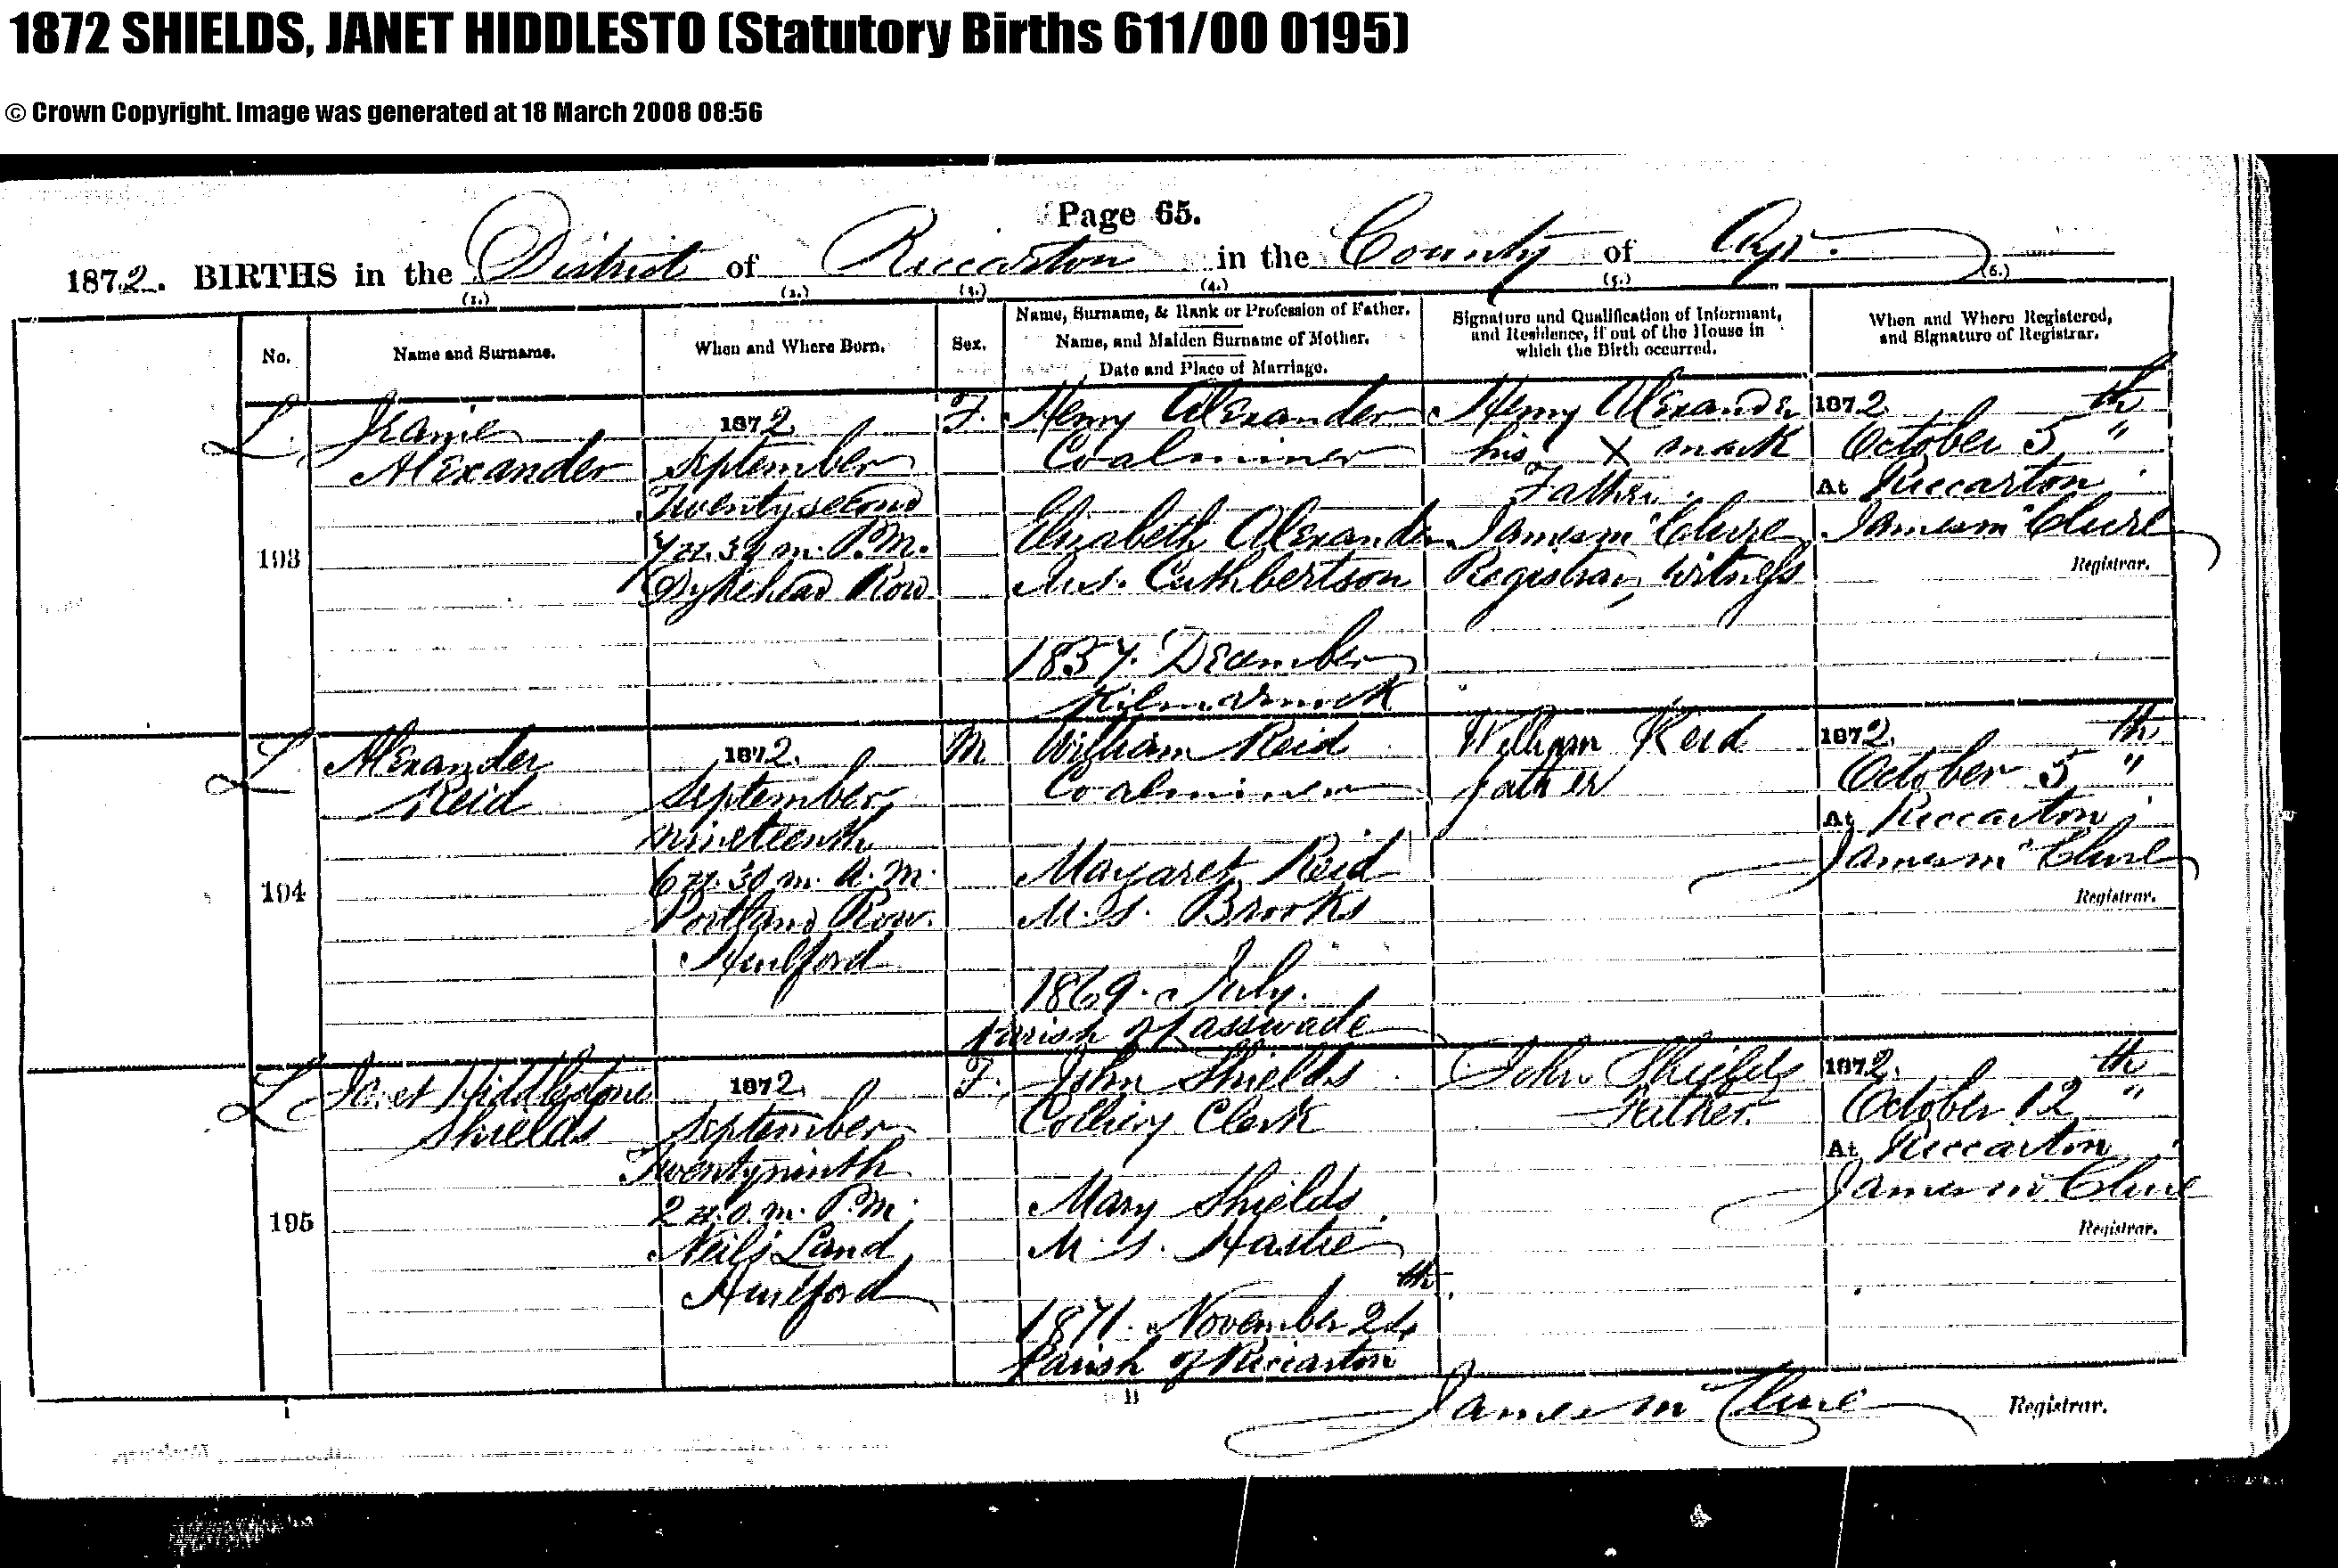 1872 SHIELDS, JANET HIDDLESTO (Statutory Births 611/00 0195)
© Crown Copyright. Image was generated at 18 March 2008 08:56
Page 65.
1872. BIRTHS in the District of Riccarton in the County of Ayr.
(1.) (2.) (3.) (4.) (5.) (6.)
No.
Name and Surname.
When and Where Born.
Sex.
Name, Surname, & Rank or Profession of Father.
Name, and Maiden Surname of Mother.
Date and Place of Marriage.
Signature and Qualification of Informant,
and Residence, if out of the House in
which the Birth occurred.
When and Where Registered,
and Signature of Registrar.
193
Jeanie
Alexander
1872
September
Twentysecond
7 H. 30 m. P.M.
Dykehead Row
F.
Henry Alexander
Coalminer
Elizabeth Alexander
M.S. Cuthbertson
1857. December
Kilmarnock
Henry Alexander
his X mark
Father.
James McClure
Registrar, Witness
1872
October 5th "
At Riccarton
James McClure
Registrar.
194
Alexander
Reid
1872.
September
Nineteenth
6 H. 30 m. A.M.
Portland Row.
Hurlford
M
William Reid
Coalminer
Margaret Reid
M.S. Brooks
1869. July.
Parish of Lasswade
William Reid
father
1872.
October 5th "
At Riccarton
James McClure
Registrar.
195
Janet Hiddlestone
Shields
1872
September
Twentyninth
2 H. 0. m. P.M.
Neil's Land
Hurlford
F.
John Shields
Colliery Clerk
Mary Shields
M.S. Hastie
1871. November 24th
Parish of Riccarton
John Shields
Father.
1872.
October 12th "
At Riccarton
James McClure
Registrar.
James McClure Registrar.